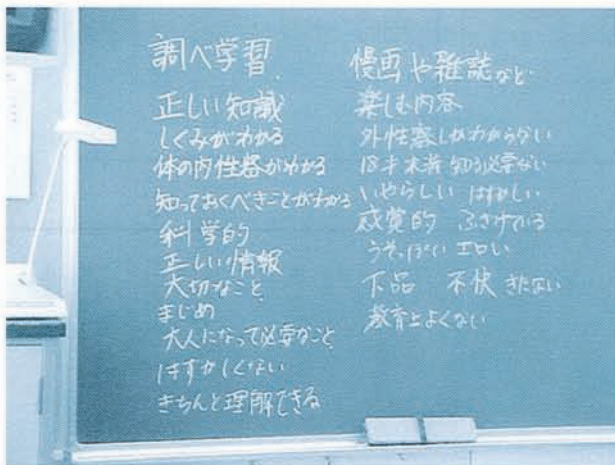 調べ学習
正しい知識
しくみがわかる
体の内性器がわかる
知っておくべきことがわかる
科学的
正しい情報
大切なこと
まじめ
大人になって必要なこと
はずかしくない
きちんと理解できる
慢画や雑誌など
楽しむ内容
外性器しかわからない
18才未満 知る必要ない
いやらしい はずかしい
感覚的 ふざけている
うそっぽい エロい
下品 不快 きたない
教育上よくない